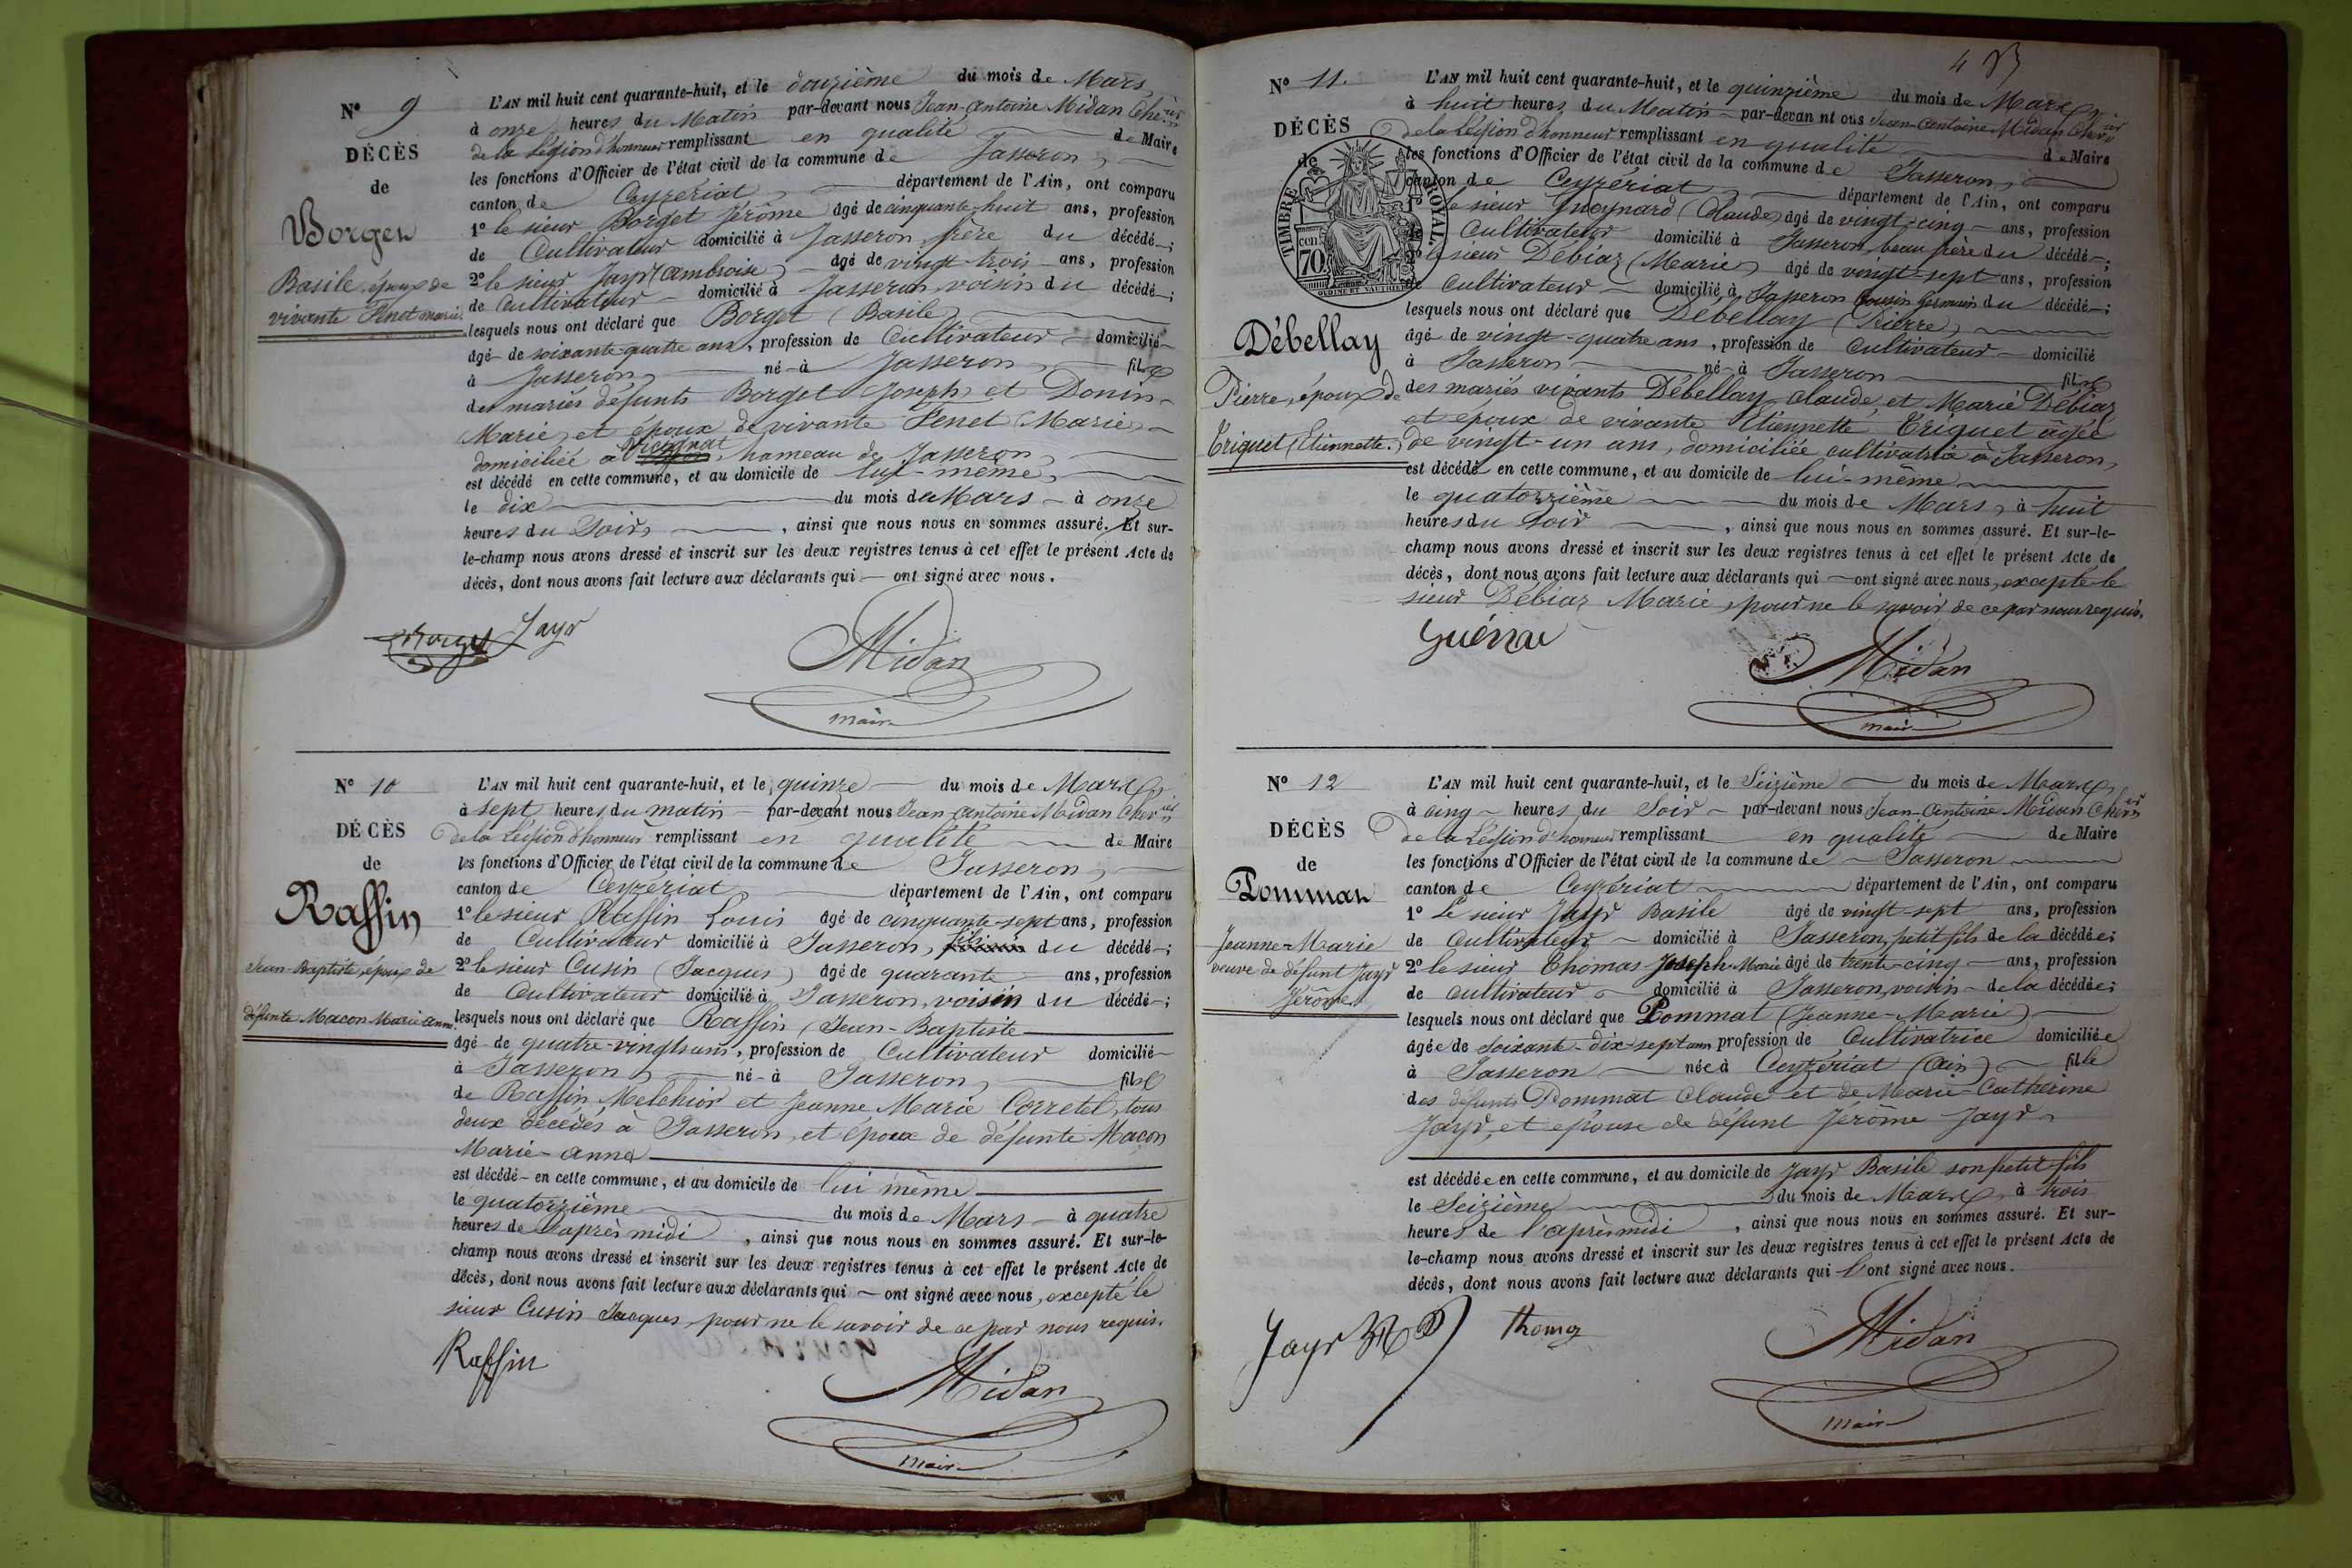 N° 9
DÉCÈS
de
Borget
Basile, époux de
vivante Penet marie
L'AN mil huit cent quarante-huit, et le douzième du mois de Mars,
à onze heures du Matin par-devant nous Jean-Antoine Midan Cher
de la Légion d'honneur remplissant en qualité de Maire
les fonctions d'Officier de l'état civil de la commune de Jasseron,
canton de Ceyzériat, département de l'Ain, ont comparu
1° le sieur Borget Jérôme âgé de cinquante-huit ans, profession
de Cultivateur domicilié à Jasseron, frère du décédé;
2° le sieur Jayr (Ambroise) âgé de vingt-trois ans, profession
de Cultivateur domicilié à Jasseron, voisin du décédé;
lesquels nous ont déclaré que Borget (Basile)
âgé de soixante-quatre ans, profession de Cultivateur domicilié
à Jasseron, né à Jasseron, fils
des mariés défunts Borget Joseph et Donin
Marie, et époux de vivante Penet (Marie)
domiciliée à hameau de Jasseron,
est décédé en cette commune, et au domicile de lui-même,
le dix du mois de Mars à onze
heures du Soir, ainsi que nous nous en sommes assuré. Et sur-
le-champ nous avons dressé et inscrit sur les deux registres tenus à cet effet le présent Acte de
décès, dont nous avons fait lecture aux déclarants qui ont signé avec nous.
Borget Jayr
Midan
maire
N° 10
DÉCÈS
de
Raffin
Jean-Baptiste, époux de
défunte Macon Marie Anne
L'AN mil huit cent quarante-huit, et le quinze du mois de Mars,
à sept heures du matin par-devant nous Jean-Antoine Midan Cher
de la Légion d'honneur remplissant en qualité de Maire
les fonctions d'Officier de l'état civil de la commune de Jasseron,
canton de Ceyzériat, département de l'Ain, ont comparu
1° le sieur Raffin Louis âgé de cinquante-sept ans, profession
de Cultivateur domicilié à Jasseron, fils du décédé;
2° le sieur Cusin (Jacques) âgé de quarante ans, profession
de Cultivateur domicilié à Jasseron, voisin du décédé;
lesquels nous ont déclaré que Raffin (Jean-Baptiste
âgé de quatre-vingts ans, profession de Cultivateur domicilié
à Jasseron, né à Jasseron, fils
de Raffin Melchior et Jeanne Marie Corretel, tous
deux décédés à Jasseron, et époux de défunte Macon
Marie-Anne
est décédé en cette commune, et au domicile de lui même
le quatorzième du mois de Mars à quatre
heures de l'après midi, ainsi que nous nous en sommes assuré. Et sur-le-
champ nous avons dressé et inscrit sur les deux registres tenus à cet effet le présent Acte de
décès, dont nous avons fait lecture aux déclarants qui ont signé avec nous, excepté le
sieur Cusin Jacques, pour ne le savoir de ce par nous requis.
Raffin
Midan
maire
N° 11.
DÉCÈS
de
TIMBRE ROYAL.
70 cen
Débellay
Pierre, époux de
Triquet (Etiennette.)
L'AN mil huit cent quarante-huit, et le quinzième du mois de Mars,
à huit heures du Matin par-devan nt ous Jean-Antoine Midan Cher
de la Légion d'honneur remplissant en qualité de Maire
les fonctions d'Officier de l'état civil de la commune de Jasseron,
canton de Ceyzériat, département de l'Ain, ont comparu
le sieur (Claude) âgé de vingt-cinq ans, profession
Cultivateur domicilié à Jasseron, beau frère du décédé;
2° le sieur Débiaz (Marie) âgé de vingt-sept ans, profession
de Cultivateur domicilié à Jasseron Cousin germain du décédé;
lesquels nous ont déclaré que Débellay (Pierre)
âgé de vingt-quatre ans, profession de Cultivateur domicilié
à Jasseron né à Jasseron fils
des mariés vivants Débellay Claude, et Marie Débiaz
et époux de vivante Etiennette Triquet âgée
de vingt-un ans, domiciliée cultivatrice à Jasseron,
est décédé en cette commune, et au domicile de lui-même
le quatorzième du mois de Mars, à huit
heures du Soir, ainsi que nous nous en sommes assuré. Et sur-le-
champ nous avons dressé et inscrit sur les deux registres tenus à cet effet le présent Acte de
décès, dont nous avons fait lecture aux déclarants qui ont signé avec nous, excepté le
sieur Débiaz Marie, pour ne le savoir de ce par nous requis.
Midan
maire
N° 12
DÉCÈS
de
Pommat
Jeanne-Marie
veuve de défunt Jayr
Jérôme
L'AN mil huit cent quarante-huit, et le Seizième du mois de Mars,
à cinq heures du Soir par-devant nous Jean-Antoine Midan Cher
de la Légion d'honneur remplissant en qualité de Maire
les fonctions d'Officier de l'état civil de la commune de Jasseron
canton de Ceyzériat département de l'Ain, ont comparu
1° Le sieur Jayr Basile âgé de vingt-sept ans, profession
de Cultivateur domicilié à Jasseron, petit fils de la décédée;
2° le sieur Thomas Joseph-Marie âgé de trente-cinq ans, profession
de cultivateur domicilié à Jasseron, voisin de la décédée;
lesquels nous ont déclaré que Pommat (Jeanne-Marie)
âgée de soixante-dix-sept ans profession de Cultivatrice domiciliée
à Jasseron née à Ceyzériat (Ain) fille
des défunts Pommat Claude et de Marie-Catherine
Jayr, et épouse de défunt Jérôme Jayr
est décédée en cette commune, et au domicile de Jayr Basile son petit fils
le Seizième du mois de Mars, à trois
heures de l'après midi, ainsi que nous nous en sommes assuré. Et sur-
le-champ nous avons dressé et inscrit sur les deux registres tenus à cet effet le présent Acte de
décès, dont nous avons fait lecture aux déclarants qui l'ont signé avec nous.
Jayr
Thomas
Midan
maire